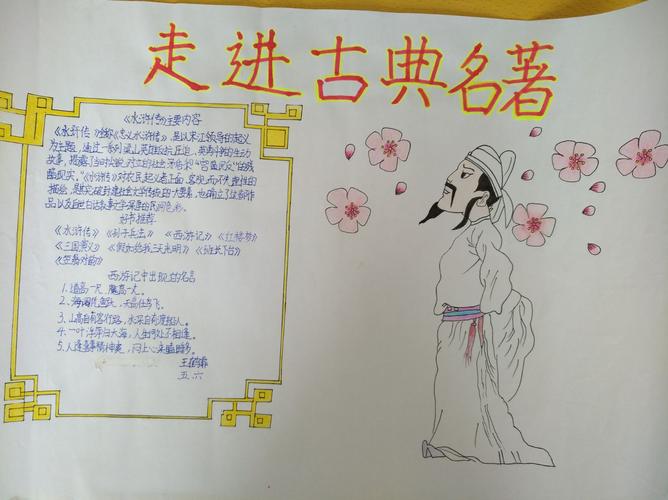 走进古典名著
《水浒传》主要内容
《水浒传》又称《忠义水浒传》，是以宋江领导的起义
为主题，通过一系列梁山英雄反抗压迫、英勇斗争的生动
故事，揭露了当时尖锐对立的社会矛盾和“官逼民反”的残
酷现实。”《水浒传》对农民起义者正面、客观而不失
描绘，是其突破封建社会文学传统的大要素，也确立了这部作
品以及白话故事文学深厚的民间色彩。
好书推荐
《水浒传》《孙子兵法》《西游记》《红楼梦》
《三国演义》《假如给我三天光明》《班长下台》
《笠翁对韵》
西游记中出现过的名言
1.道高一尺，魔高一丈。
2.海阔凭鱼跃，天高任鸟飞。
3.山高自有客行路，水深自有渡船人。
4.一叶浮萍归大海，人生何处不相逢。
5.人逢喜事精神爽，闷上心来瞌睡多。
五.六